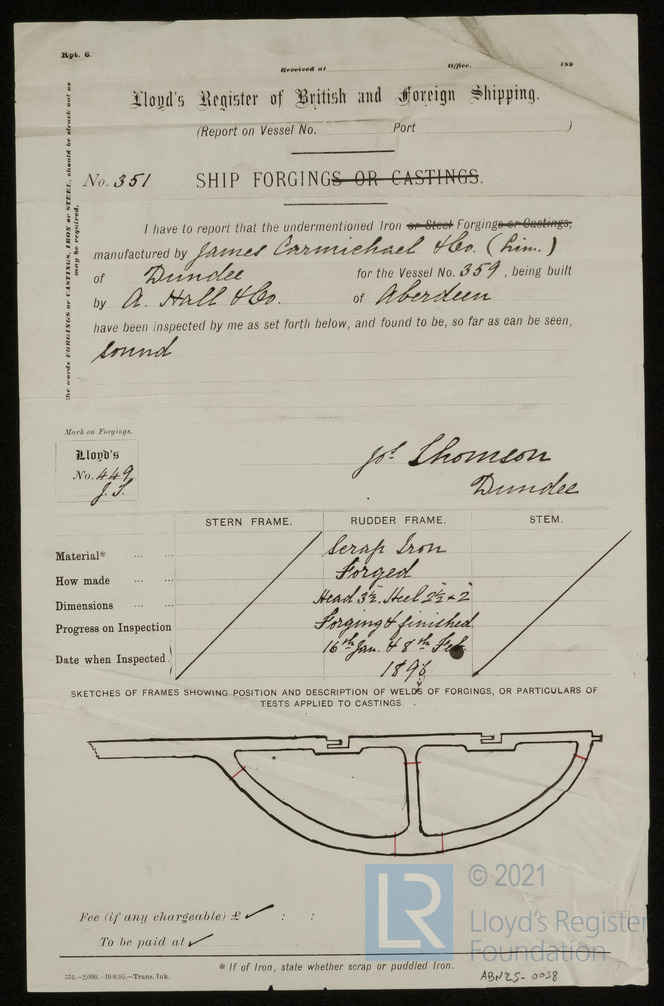 Rpt. 6.
Received at Office, 189
Lloyd's Register of British and Foreign Shipping.
(Report on Vessel No. Port )
No. 351 SHIP FORGINGS OR CASTINGS.
The words FORGINGS or CASTINGS, IRON or STEEL, should be struck out as may be required.
I have to report that the undermentioned Iron or Steel Forgings or Castings,
manufactured by James Carmichael & Co. (Lim.)
of Dundee for the Vessel No. 359, being built
by A. Hall & Co. of Aberdeen
have been inspected by me as set forth below, and found to be, so far as can be seen,
sound
Mark on Forgings.
Lloyd's
No. 449
J.T.
Jos. Thomson
Dundee
STERN FRAME. RUDDER FRAME. STEM.
Material* ... ... Scrap Iron
How made ... ... Forged
Dimensions ... ... Head 3½" Heel 2½ + 2"
Progress on Inspection Forging & finished
Date when Inspected 16th Jan. & 8th Feb.
1896
SKETCHES OF FRAMES SHOWING POSITION AND DESCRIPTION OF WELDS OF FORGINGS, OR PARTICULARS OF
TESTS APPLIED TO CASTINGS.
Fee (if any chargeable) £ ✓ : :
To be paid at ✓
* If of Iron, state whether scrap or puddled Iron.
534.—2,000.—10/6/95.—Trans. Ink.
ABN25-0058
LR
© 2021
Lloyd's Register
Foundation